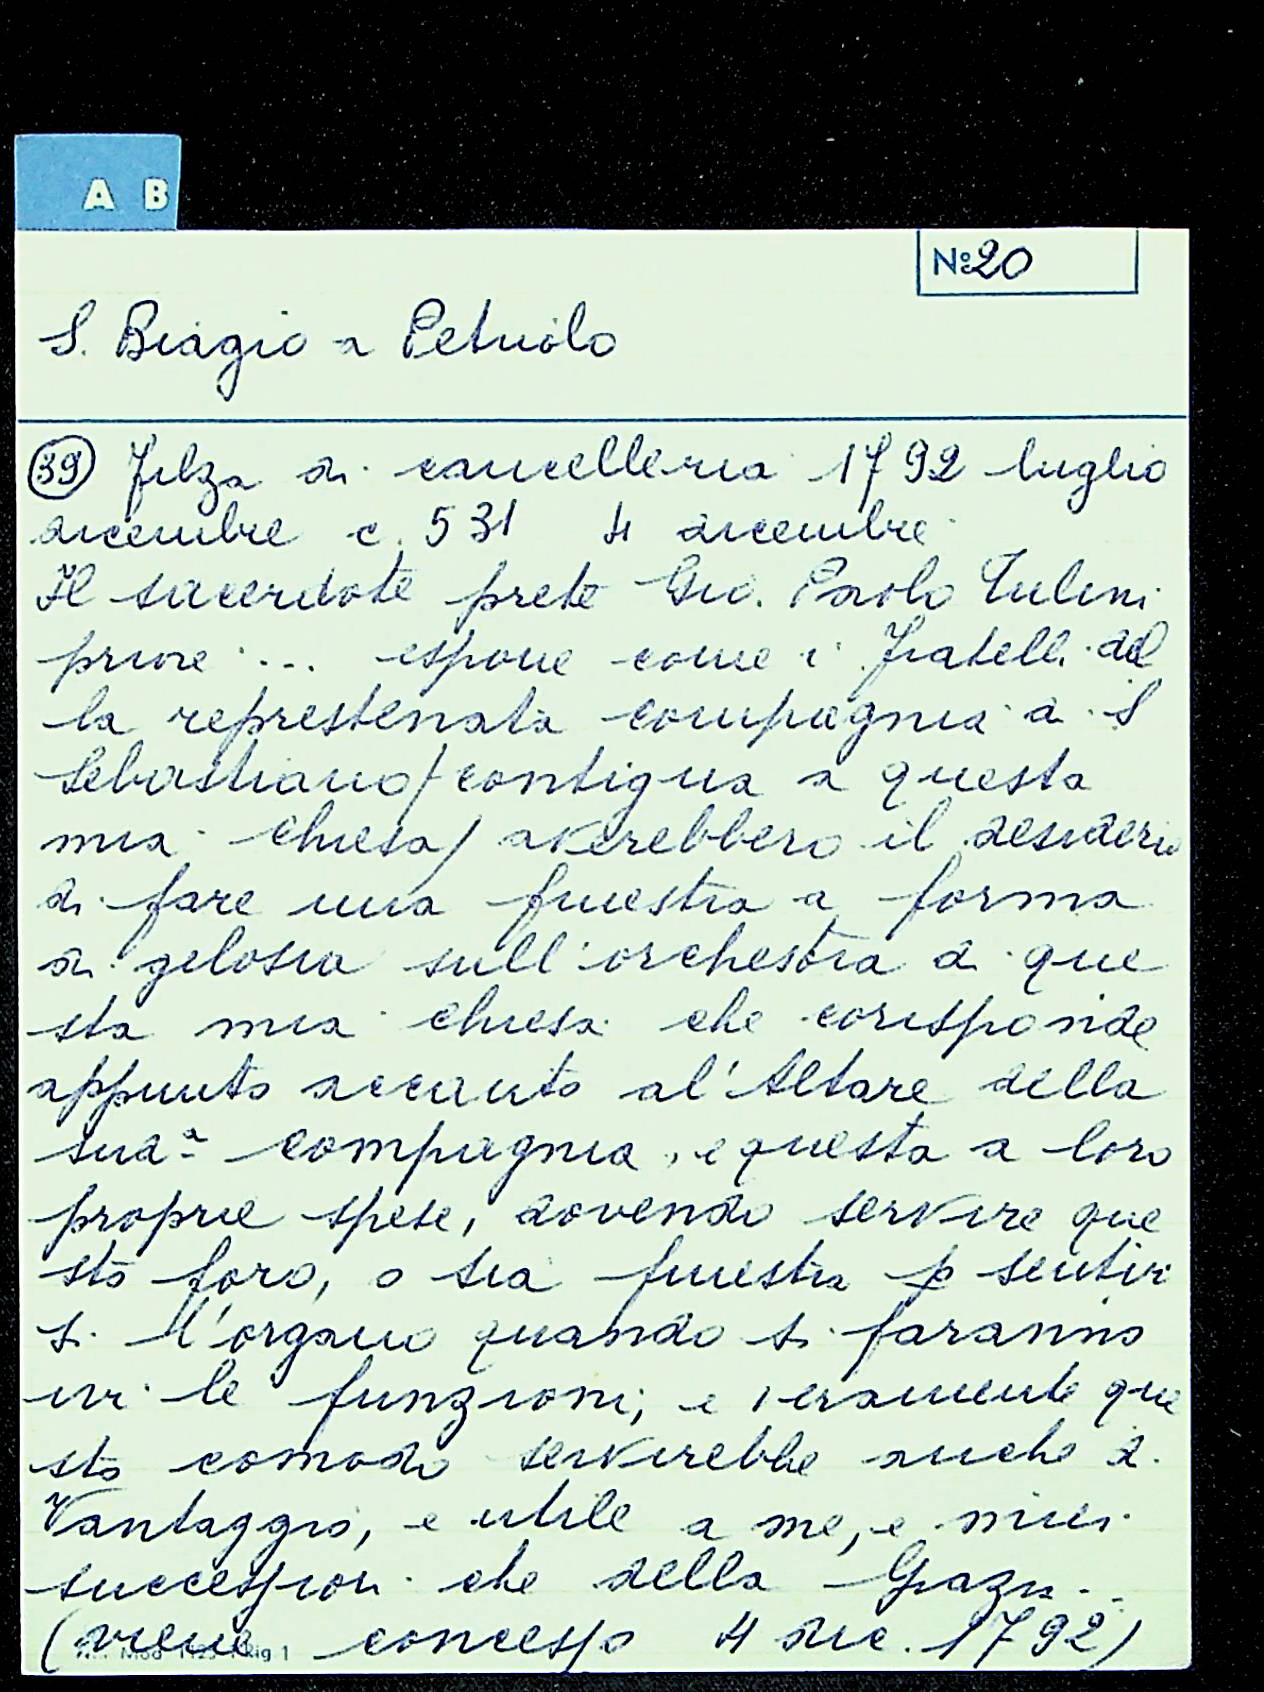 A B
Nº 20
S. Biagio a Petriolo
39 Filza di cancelleria 1792 luglio
dicembre c. 531 4 dicembre
Il sacerdote prete Gio. Paolo Tulini
priore ... espone come i fratelli del
la represtenata compagnia di S
Sebastiano/contigua a questa
mia chiesa/ averebbero il desiderio
di fare una finestra a forma
di gelosia sull'orchestra di que
sta mia chiesa che corisponde
appunto accanto al'Altare della
sud.ª compagnia, e questa a loro
proprie spese, dovendo servire que
sto foro, o sia finestra p sentir
si l'organo quando si faranno
ivi le funzioni; e veramente que
sto comodo servirebbe anche di
Vantaggio, e utile a me, e miei
successori che della Grazia..
(viene concesso 4 dic. 1792)
Rig 1